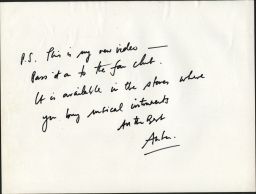 P.S. This is my new video —
Pass it on to the fan club.
It is available in the stores where
you buy musical instruments
All the Best